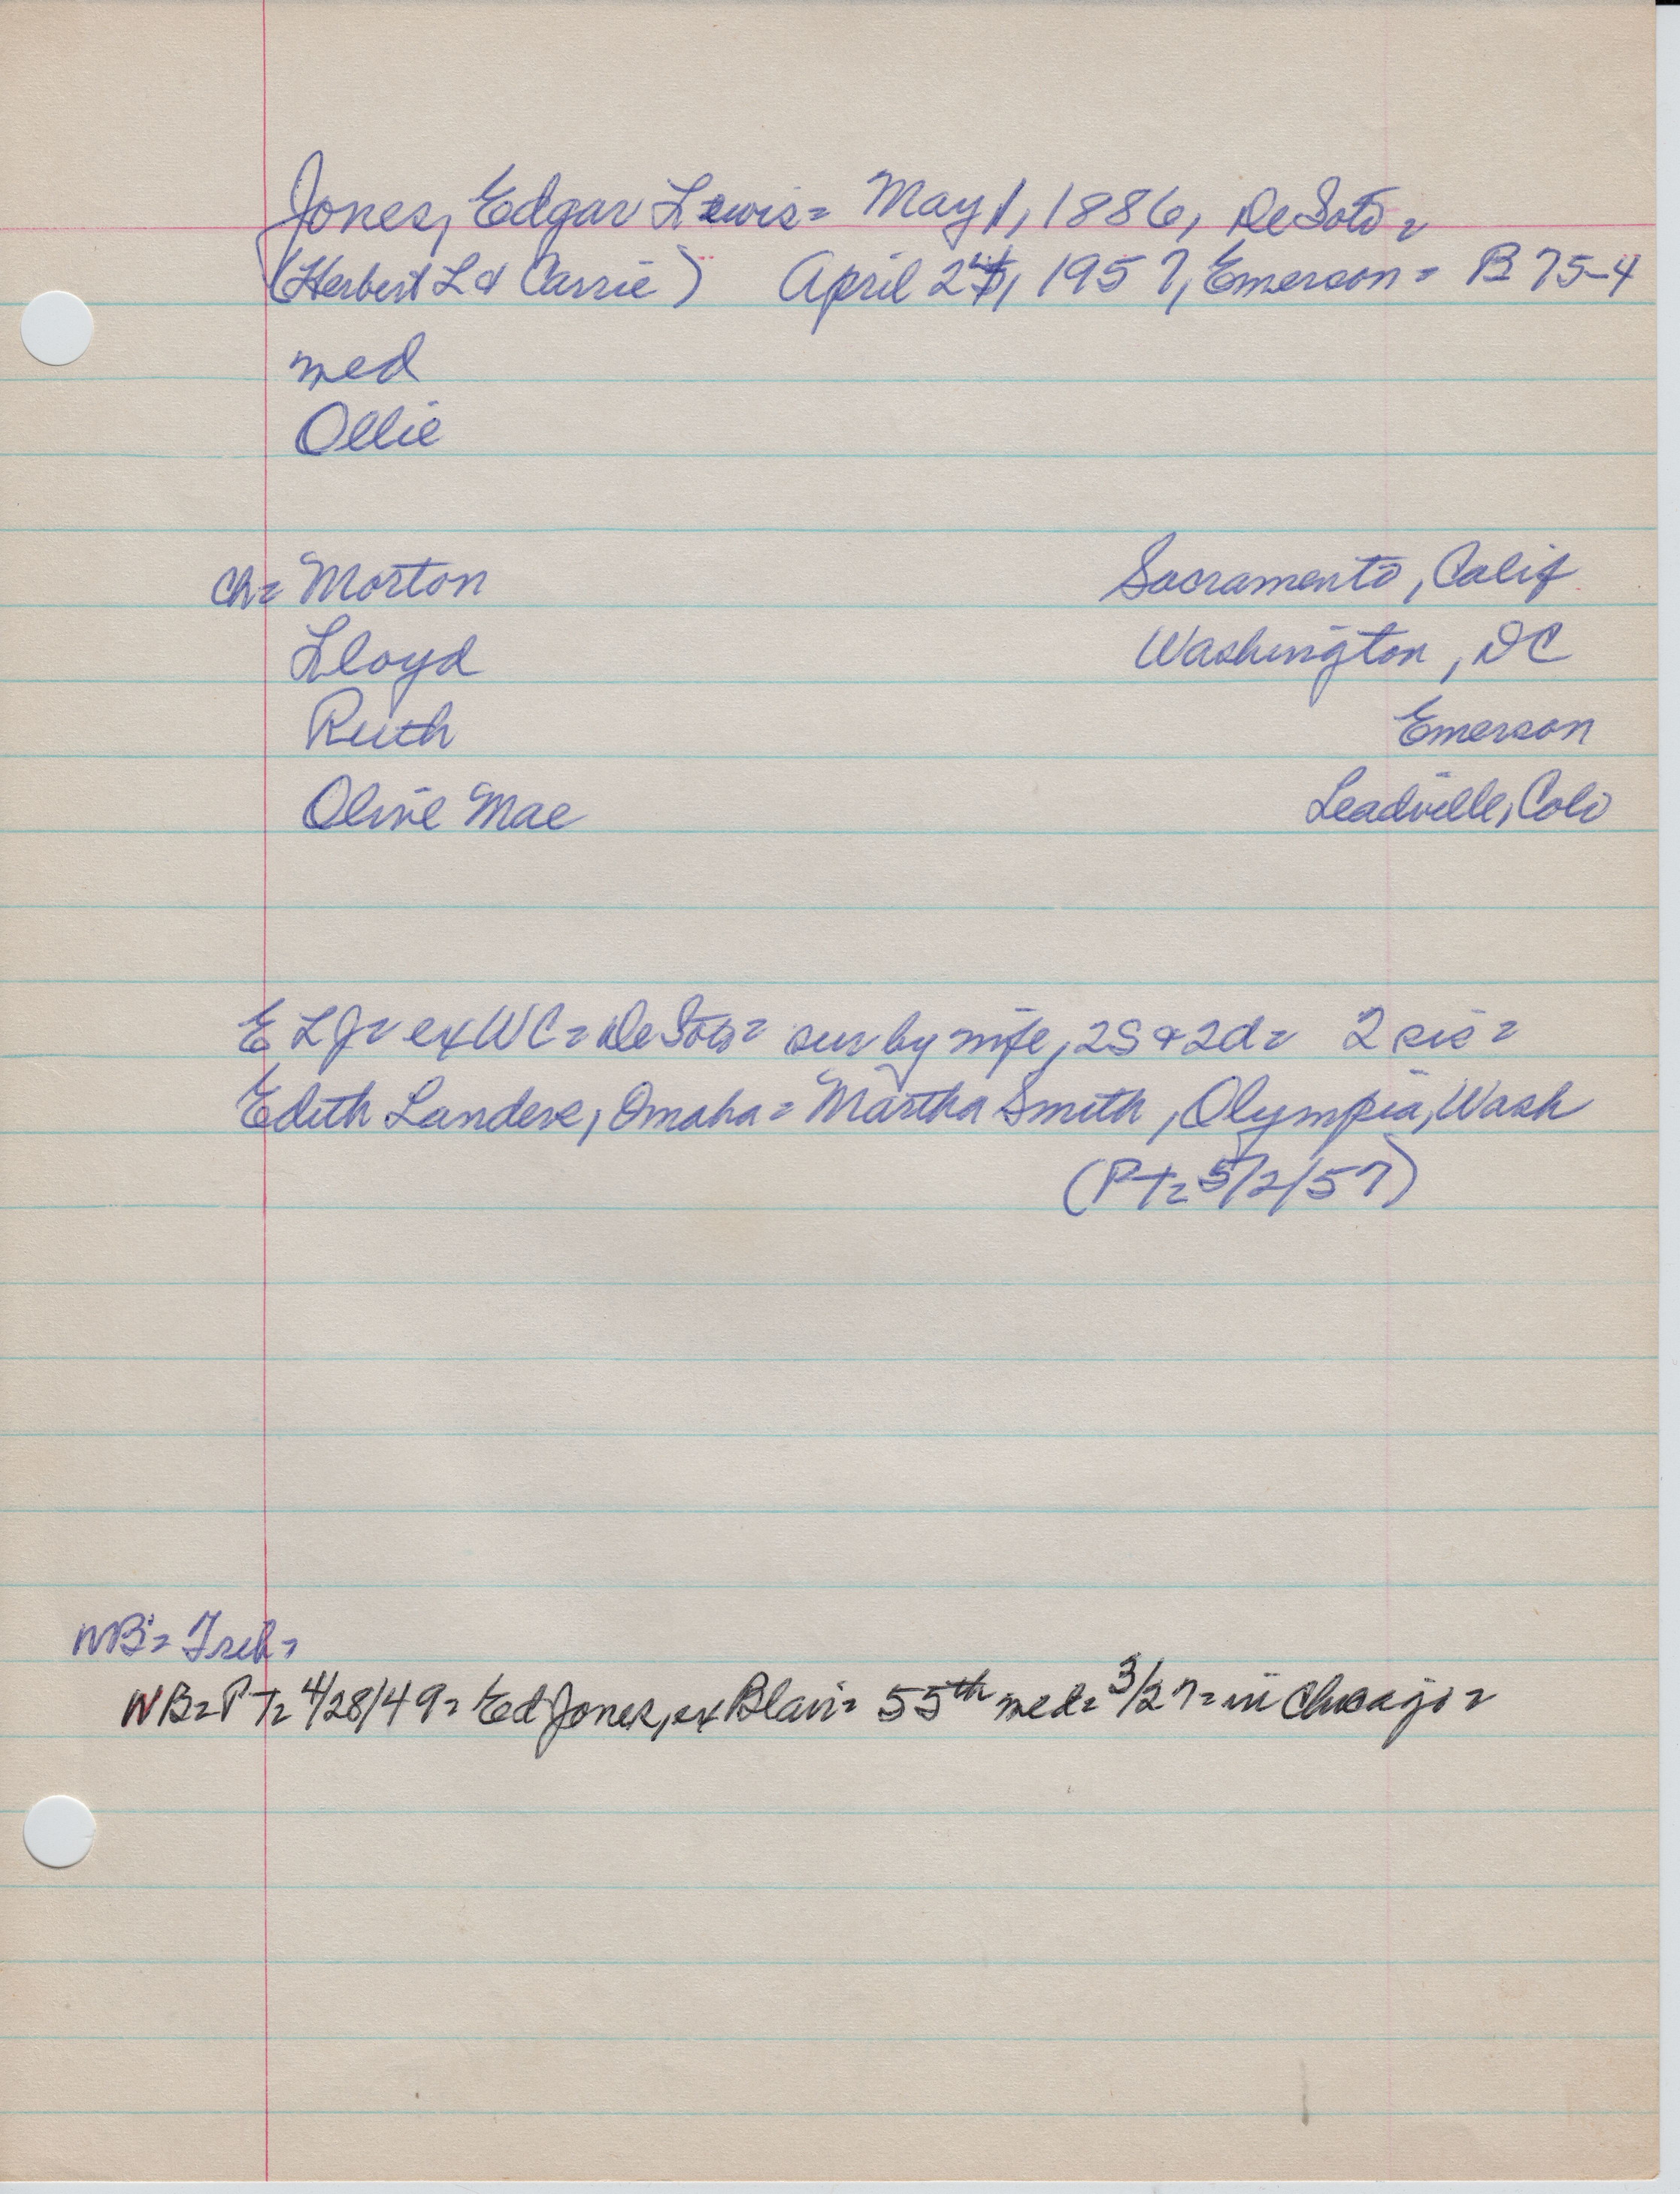 Jones, Edgar Lewis= May 1, 1886, DeSoto=
(Herbert L & Carrie) April 24, 1957, Emerson= B 75-4
med
Ollie
Ch= Morton Sacramento, Calif
Lloyd Washington, DC
Ruth Emerson
Olive Mae Leadville, Colo
ELJ= ex WC= DeSoto= sur by wife, 2S & 2d= 2 sis=
Edith Landers, Omaha= Martha Smith, Olympia, Wash
(PT= 5/2/57)
NB=
NB= PT= 4/28/49= Ed Jones, ex Blair= 55th med= 3/27= in Chicago=